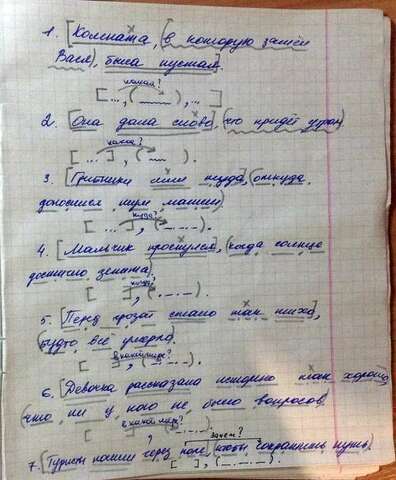 1. [Комната, (в которую зашёл
Вася), была пустая].
какая?
[..., ( ), ...]
2. [Она дала слово], (что придёт утром)
какое?
[ ... ], ( ).
3. [Грибники шли туда], (откуда
доносился шум машин)
куда?
[ ... ], (-.-.).
4. [Мальчик проснулся], (когда солнце
достигло зенита).
когда?
[ ], (-.-.-).
5. [Перед грозой стало так тихо],
(будто всё умерло.
в какой мере?
[ ], (-.-.-.).
6. [Девочка рассказала историю так хорошо,
(что ни у кого не было вопросов)
в какой мере?
[ ], (-.-.-.).
зачем?
7. [Туристы пошли через поле, чтобы сократить путь).
[ ], (-.-.-.-).